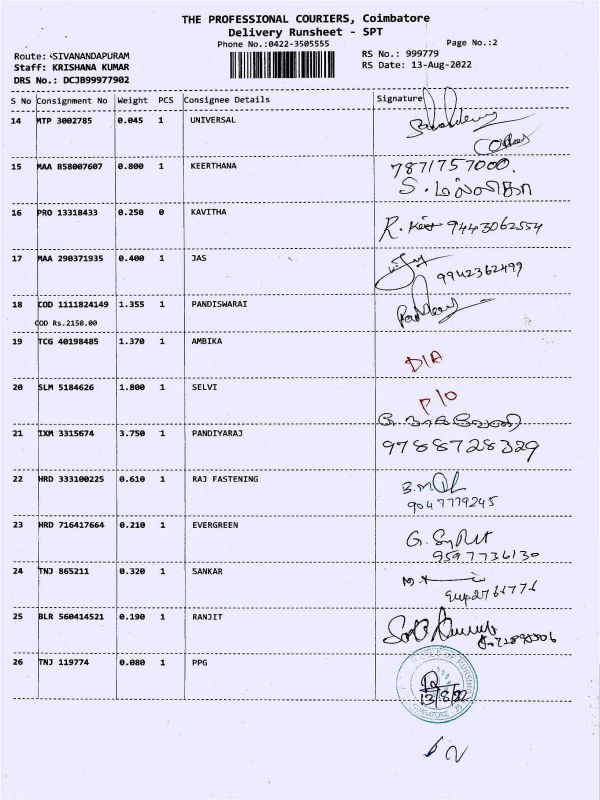 THE PROFESSIONAL COURIERS, Coimbatore
Delivery Runsheet - SPT
Phone No.:0422-3505555
Page No.:2
Route: SIVANANDAPURAM
RS No.: 999779
Staff: KRISHANA KUMAR
RS Date: 13-Aug-2022
DRS No.: DCJB99977902
S No Consignment No Weight PCS Consignee Details Signature
14 MTP 3002785 0.045 1 UNIVERSAL
15 MAA 858007607 0.800 1 KEERTHANA 7871757000.
16 PRO 13318433 0.250 0 KAVITHA R. 9443062554
17 MAA 290371935 0.400 1 JAS 9942362499
18 COD 1111824149 1.355 1 PANDISWARAI
COD Rs.2150.00
19 TCG 40198485 1.370 1 AMBIKA D/A
20 SLM 5184626 1.800 1 SELVI P/O
21 IXM 3315674 3.750 1 PANDIYARAJ 9788728329
22 HRD 333100225 0.610 1 RAJ FASTENING 9047779245
23 HRD 716417664 0.210 1 EVERGREEN 9597736130
24 TNJ 865211 0.320 1 SANKAR
25 BLR 560414521 0.190 1 RANJIT
26 TNJ 119774 0.080 1 PPG 13/8/22